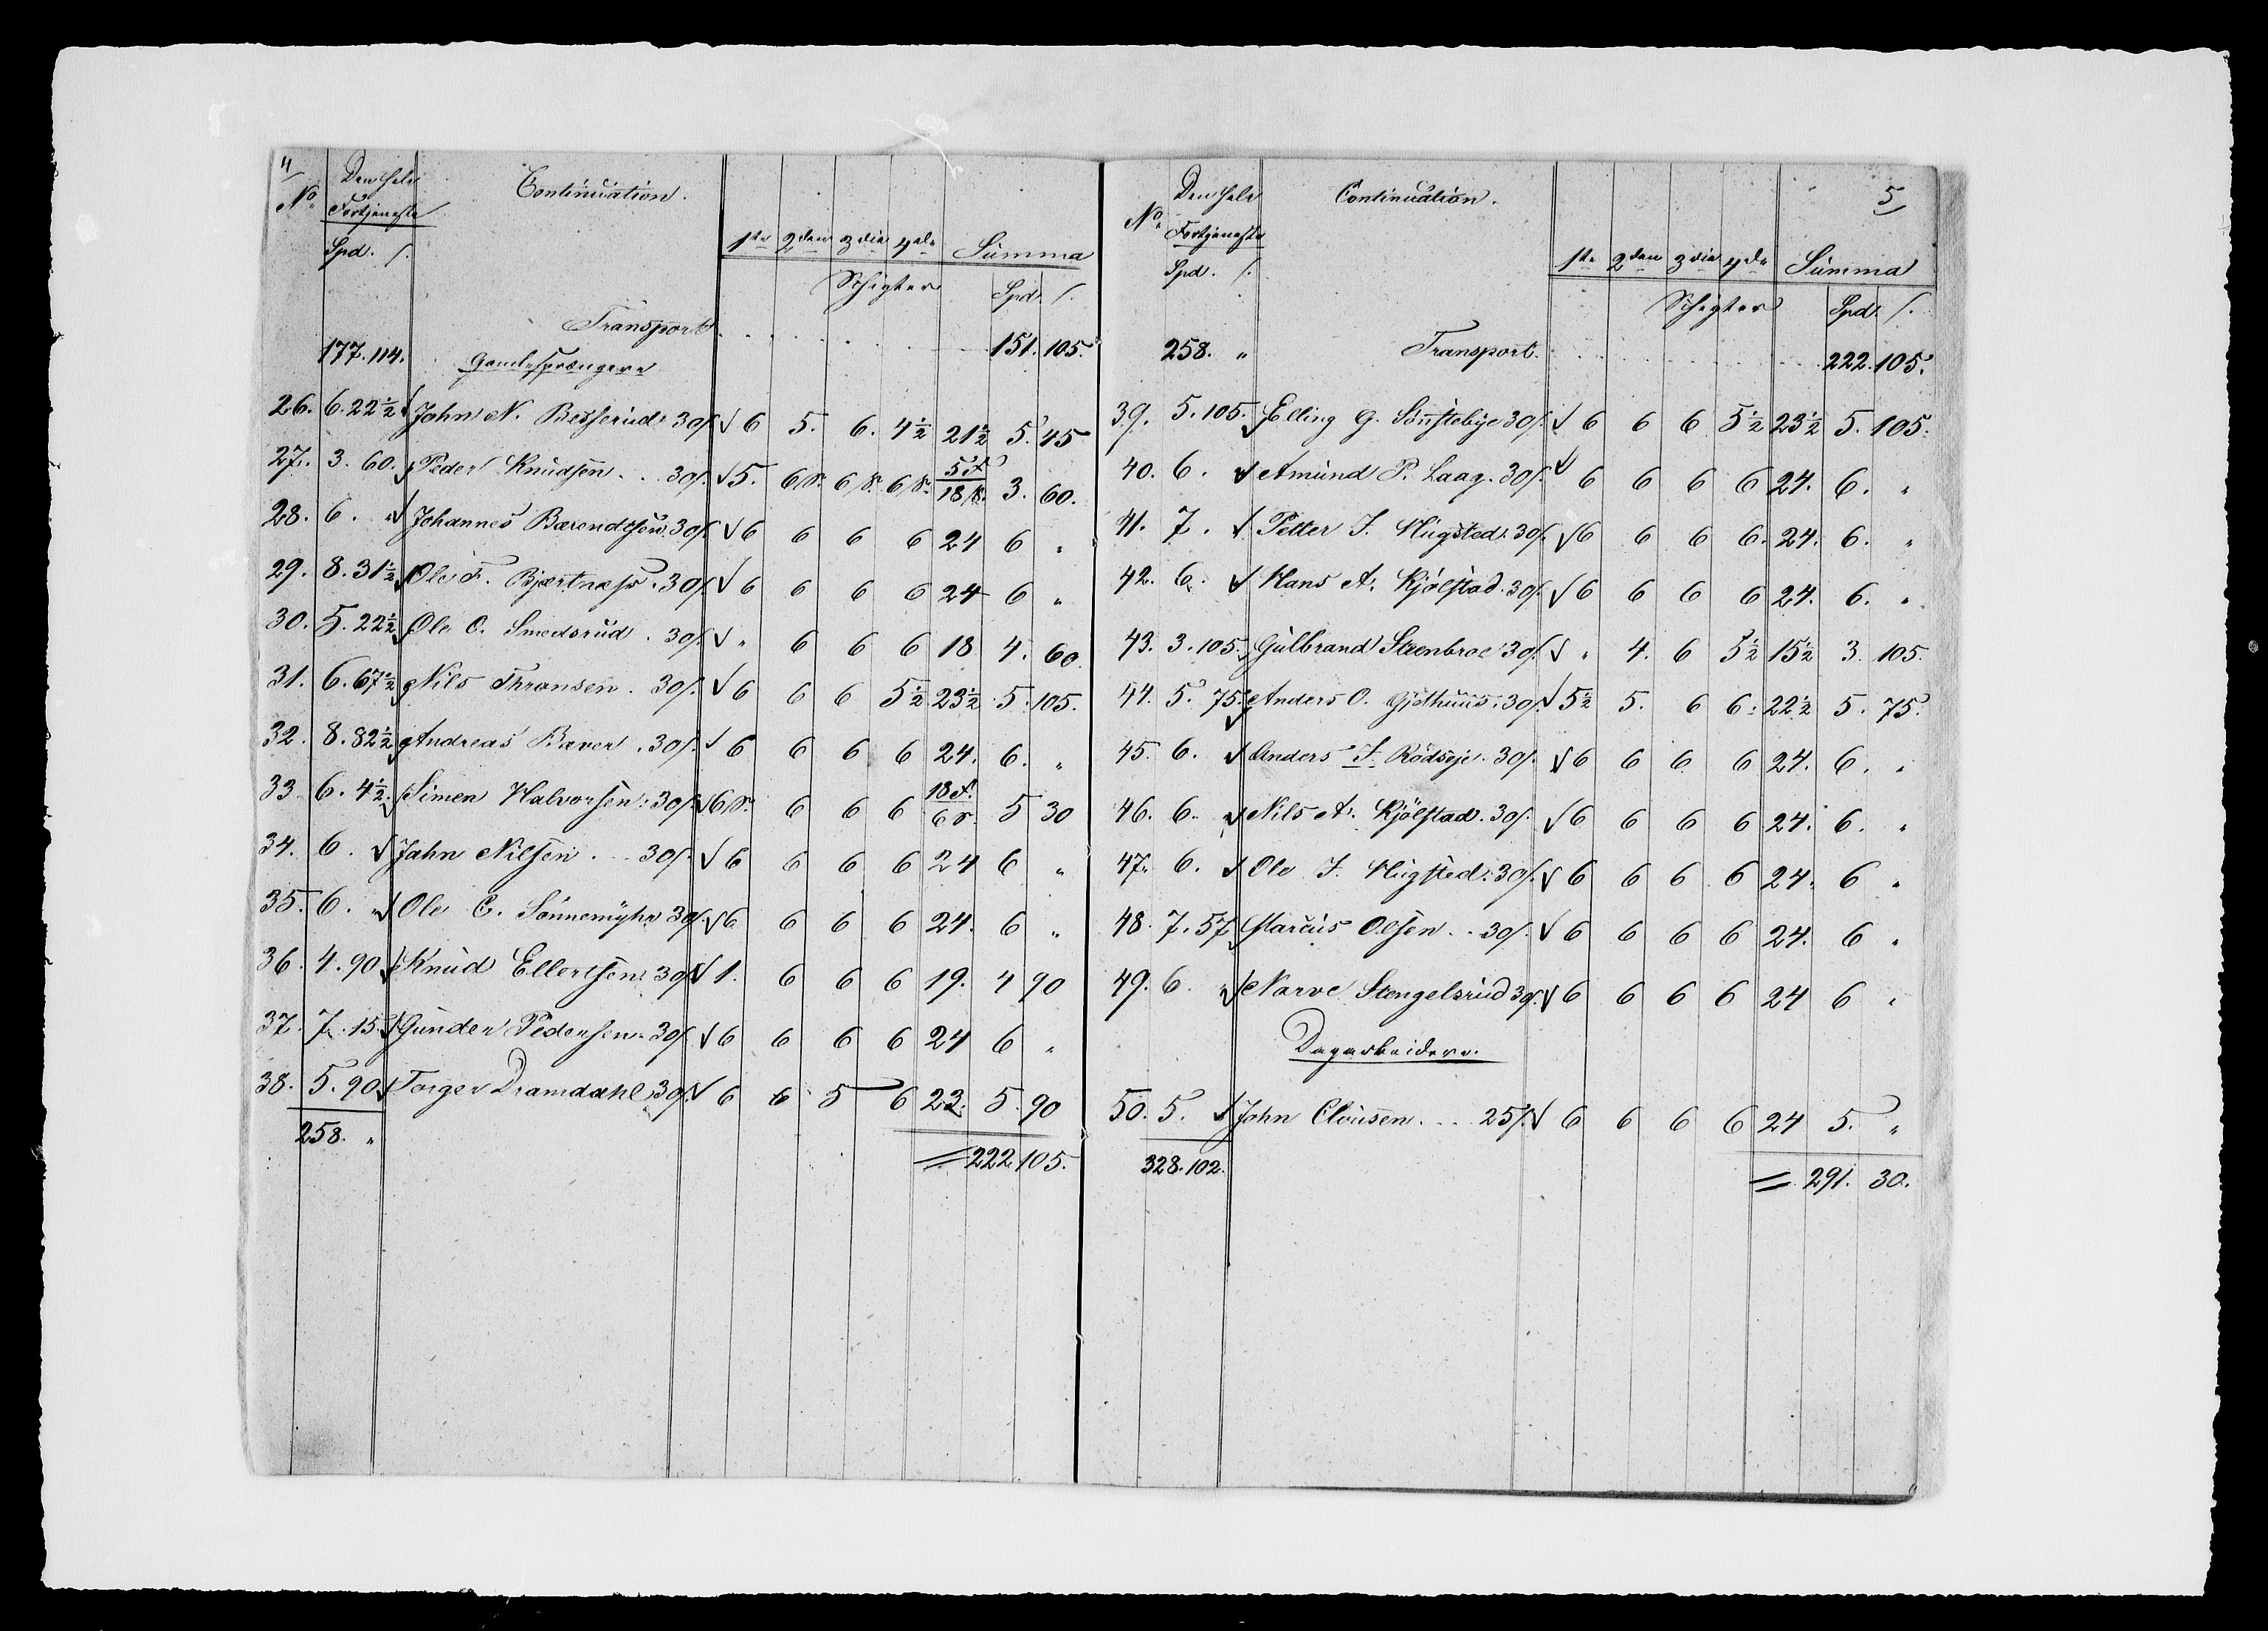 4/
No. Den hele Fortjeneste Continuation.
1te 2den 3die 4de Summa
Spd. /. Schigter Spd. /.
Transport
177. 114. 151. 105.
Gamle
26. 6. 22½ John N. Besserud 30/. √ 6 5. 6. 4½ 21½ 5. 45
27. 3. 60. Peder Knudsen . . 30/. √ 5. 6 S. 6 S. 6 S. 5 F 18 S. 3. 60.
28. 6. " √ Johannes Barendtsen 30/. √ 6 6 6 6 24 6 "
29. 8. 31½ Ole F. Bjertness . 30/. √ 6 6 6 6 24 6 "
30. 5. 22½ Ole O. Smedsrud . 30/. √ " 6 6 6 18 4. 60.
31. 6. 67½ Nils Thransen . 30/. √ 6 6 6 5½ 23½ 5. 105.
32. 8. 82½ Andreas Baver . 30/. √ 6 6 6 6 24. 6. "
33. 6. 4½ Simen Halvorsen . 30/. √ 6 S. 6 6 6 18 F. 6 S. 5 30
34. 6. √ Jahn Nilsen . . . 30/. √ 6 6 6 6 24 6 "
35. 6. " √ Ole C. Sönnemyhr 30/. √ 6 6 6 6 24. 6 "
36. 4. 90 √ Knud Ellertsen 30/. √ 1. 6 6 6 19. 4 90
37. 7. 15. √ Gunder Pedersen . 30/. √ 6 6 6 6 24 6 "
38. 5. 90 √ Torger Dramdahl 30/. √ 6 6 5 6 23. 5. 90
258. "
= 222. 105.
5/
No. Den hele Fortjeneste Continuation.
1te 2den 3die 4de Summa
Spd. /. Schigter Spd. /.
258. " Transport. 222. 105.
39. 5. 105. Elling G. Sönstebye 30/. √ 6 6 6 5½ 23½ 5. 105.
40. 6. √ Amund P. Laag . 30/. √ 6 6 6 6 24. 6. "
41. 7. √ Petter J. Hugsted . 30/. √ 6 6 6 6. 24. 6. "
42. 6. √ Hans A. Kjölstad . 30/. √ 6 6 6 6 24. 6. "
43. 3. 105. Gulbrand Steenbroe 30/. √ " 4. 6 5½ 15½ 3. 105.
44. 5. 75. Anders O. Gjethuus . 30/. √ 5½ 5. 6 6. 22½ 5. 75.
45. 6. √ Anders J. Rödseje . 30/. √ 6 6 6 6 24. 6. "
46. 6. √ Nils A. Kjölstad . 30/. √ 6 6 6 6 24. 6. "
47. 6. √ Ole J. Hugsted . 30/. √ 6 6 6 6 24. 6 "
48. 7. 57 Marcus Olsen . . 30/. √ 6 6 6 6 24. 6 "
49. 6 " √ Narve Stengelsrud 30/. √ 6 6 6 6 24 6 "
Dagarbeidere.
50. 5. √ John Clousen . . . 25/. √ 6 6 6 6 24 5. "
328. 102.
= 291. 30.